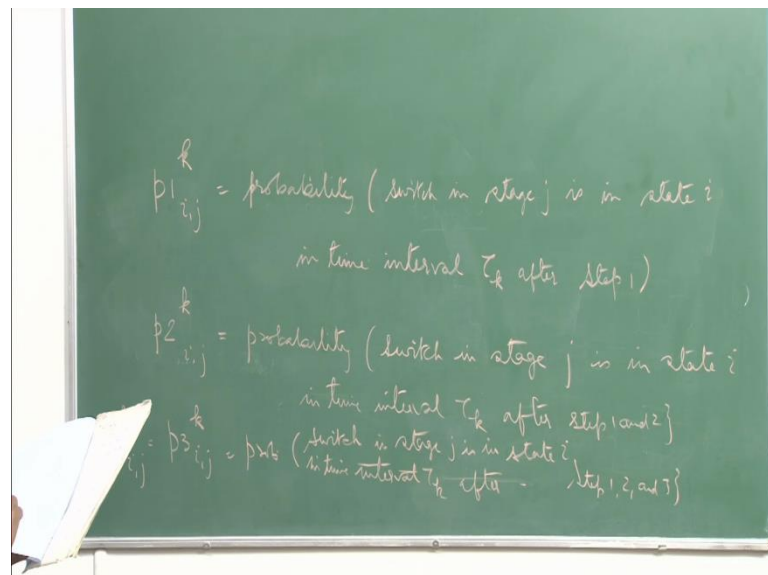 p1^k_{i,j} = probability ( switch in stage j is in state i
in time interval τ_k after step 1 )
p2^k_{i,j} = probability ( switch in stage j is in state i
in time interval τ_k after step 1 and 2 }
i,j = p3^k_{i,j} = prob ( switch in stage j is in state i
in time interval τ_k after - step 1, 2, and 3 }